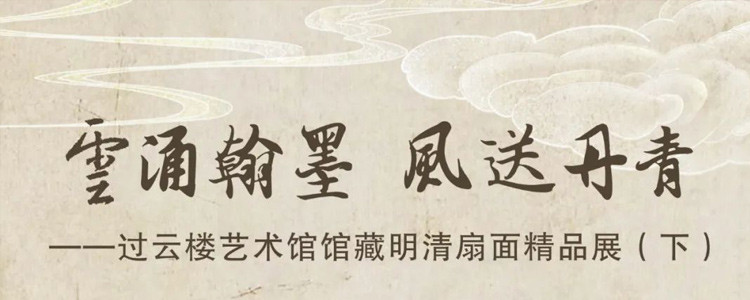 雲涌翰墨 風送丹青
——过云楼艺术馆馆藏明清扇面精品展（下）